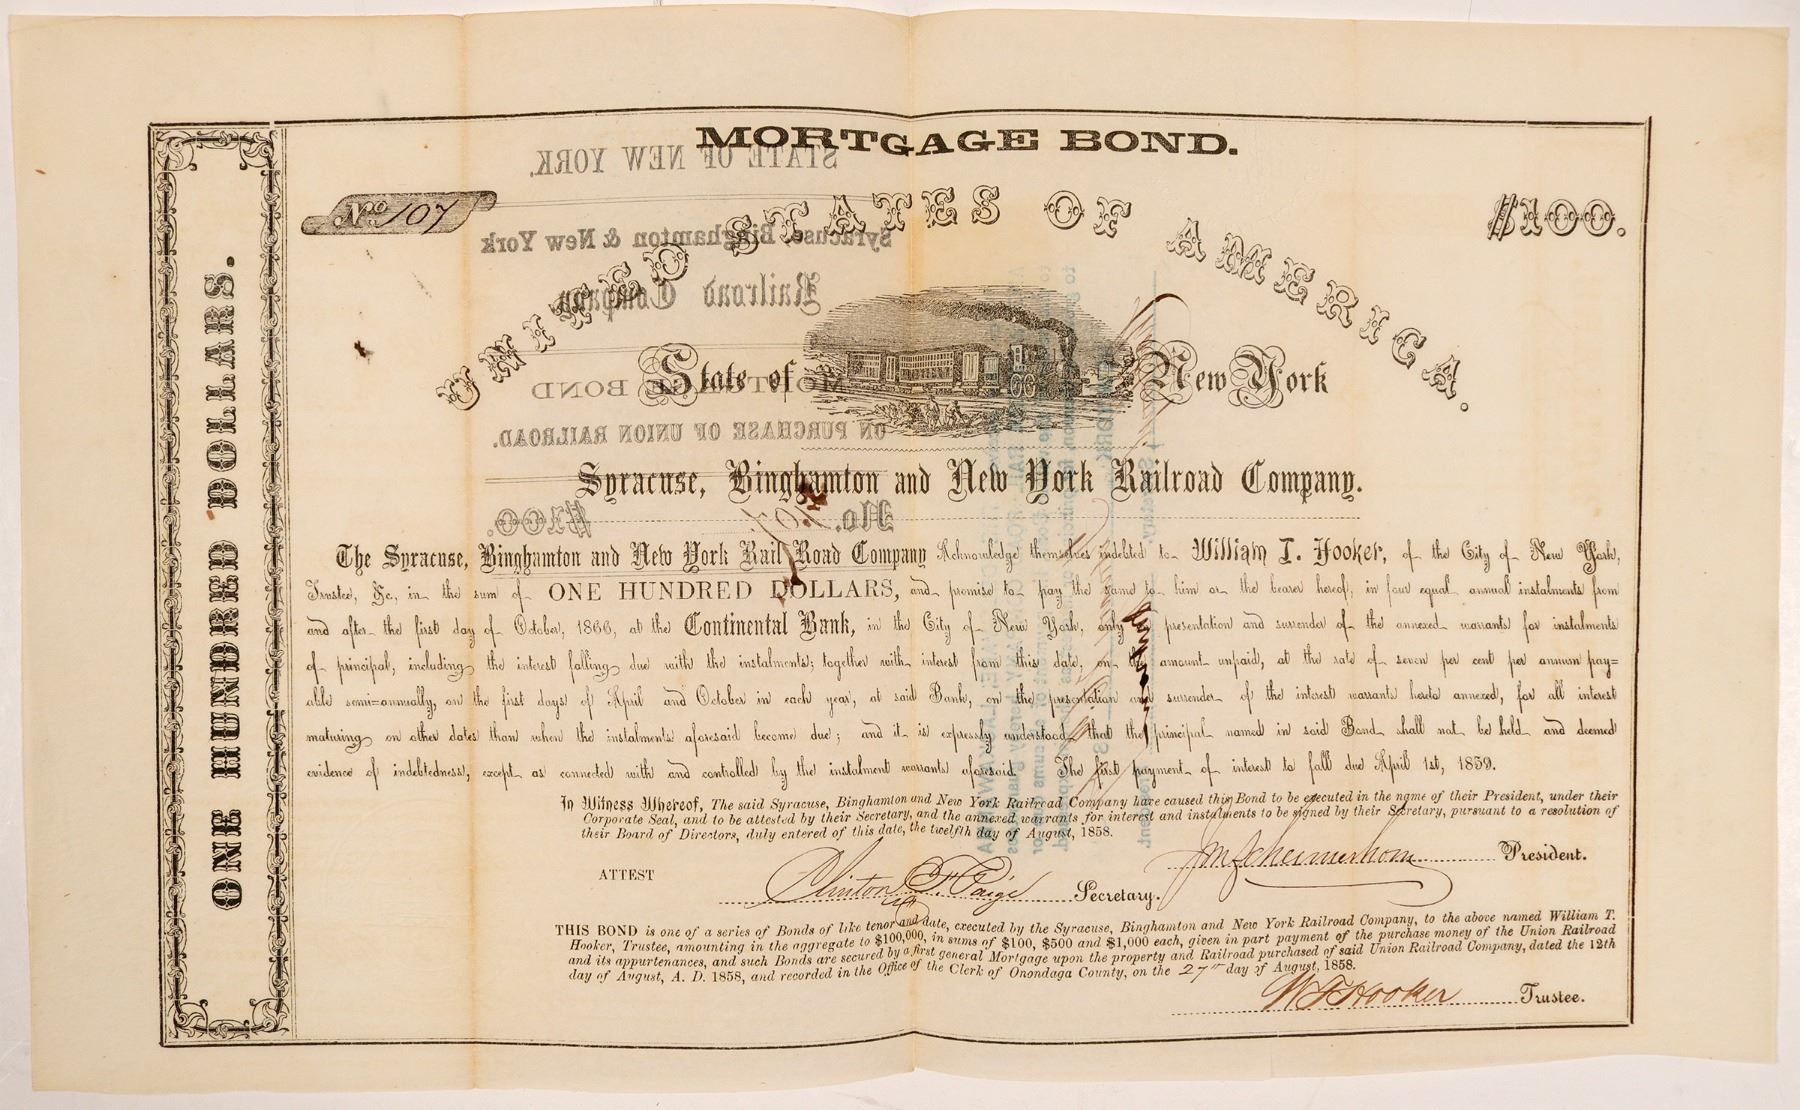 MORTGAGE BOND.
No 107
UNITED STATES OF AMERICA.
$100.
State of New York
Syracuse, Binghamton and New York Railroad Company.
ONE HUNDRED DOLLARS.
The Syracuse, Binghamton and New York Rail Road Company Acknowledge themselves indebted to William T. Hooker, of the City of New York,
Trustee, &c., in the sum of ONE HUNDRED DOLLARS, and promise to pay the same to him or the bearer hereof, in four equal annual instalments from
and after the first day of October, 1866, at the Continental Bank, in the City of New York, only on presentation and surrender of the annexed warrants for instalments
of principal, including the interest falling due with the instalments; together with interest from this date, on the amount unpaid, at the rate of seven per cent per annum pay=
able semi=annually, on the first days of April and October in each year, at said Bank, on the presentation and surrender of the interest warrants hereto annexed, for all interest
maturing on other dates than when the instalments aforesaid become due; and it is expressly understood that the principal named in said Bond shall not be held and deemed
evidence of indebtedness, except as connected with and controlled by the instalment warrants aforesaid. The first payment of interest to fall due April 1st, 1859.
In Witness Whereof, The said Syracuse, Binghamton and New York Railroad Company have caused this Bond to be executed in the name of their President, under their
Corporate Seal, and to be attested by their Secretary, and the annexed warrants for interest and instalments to be signed by their Secretary, pursuant to a resolution of
their Board of Directors, duly entered of this date, the twelfth day of August, 1858.
J M Schermerhorn President.
ATTEST Clinton F. Paige Secretary.
THIS BOND is one of a series of Bonds of like tenor and date, executed by the Syracuse, Binghamton and New York Railroad Company, to the above named William T.
Hooker, Trustee, amounting in the aggregate to $100,000, in sums of $100, $500 and $1,000 each, given in part payment of the purchase money of the Union Railroad
and its appurtenances, and such Bonds are secured by a first general Mortgage upon the property and Railroad purchased of said Union Railroad Company, dated the 12th
day of August, A. D. 1858, and recorded in the Office of the Clerk of Onondaga County, on the 27th day of August, 1858.
W T Hooker Trustee.
STATE OF NEW YORK.
Syracuse, Binghamton & New York
Railroad Company
MORTGAGE BOND
ON PURCHASE OF UNION RAILROAD.
No. 107 $100.